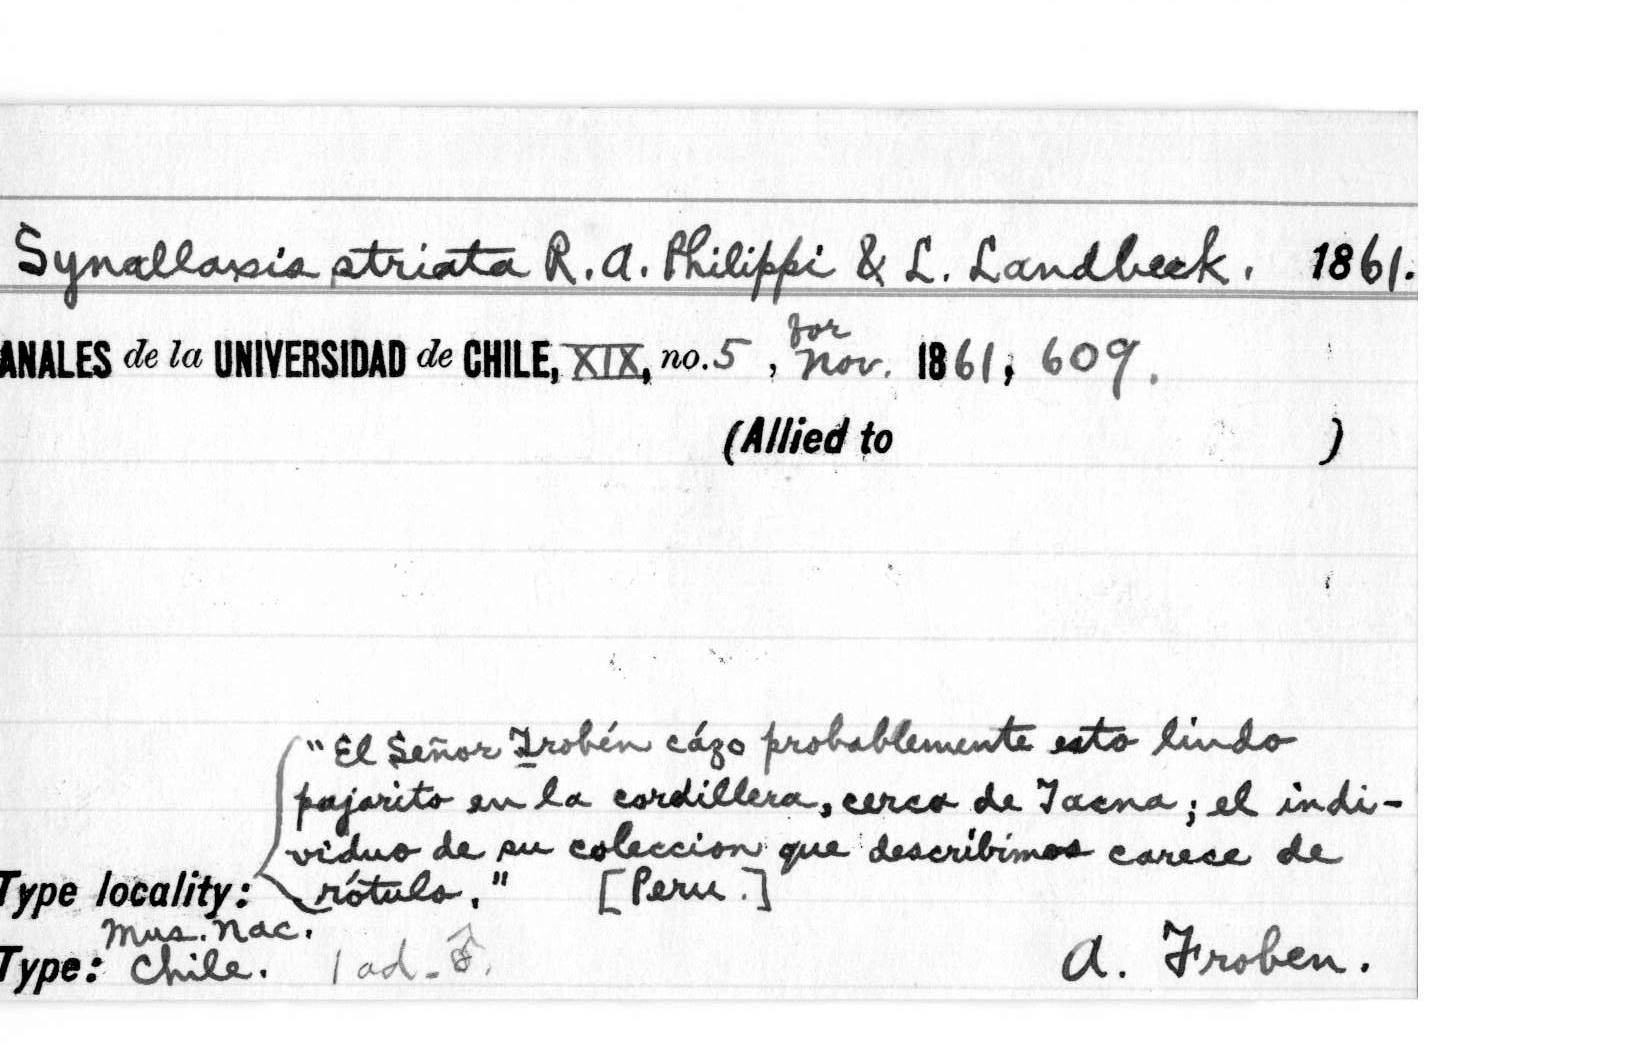 Synallaxis striata R. A. Philippi & L. Landbeck. 1861.
for
ANALES de la UNIVERSIDAD de CHILE, XIX, no. 5, Nov. 1861, 609.
(Allied to )
"El Señor Frobén cázo probablemente esto lindo
pajarito en la cordillera, cerca de Tacna; el indi-
viduo de su coleccion que describimos carece de
Type locality: rótulo." [Peru.]
Mus. Nac.
Type: Chile. 1 ad. ♂. A. Froben.